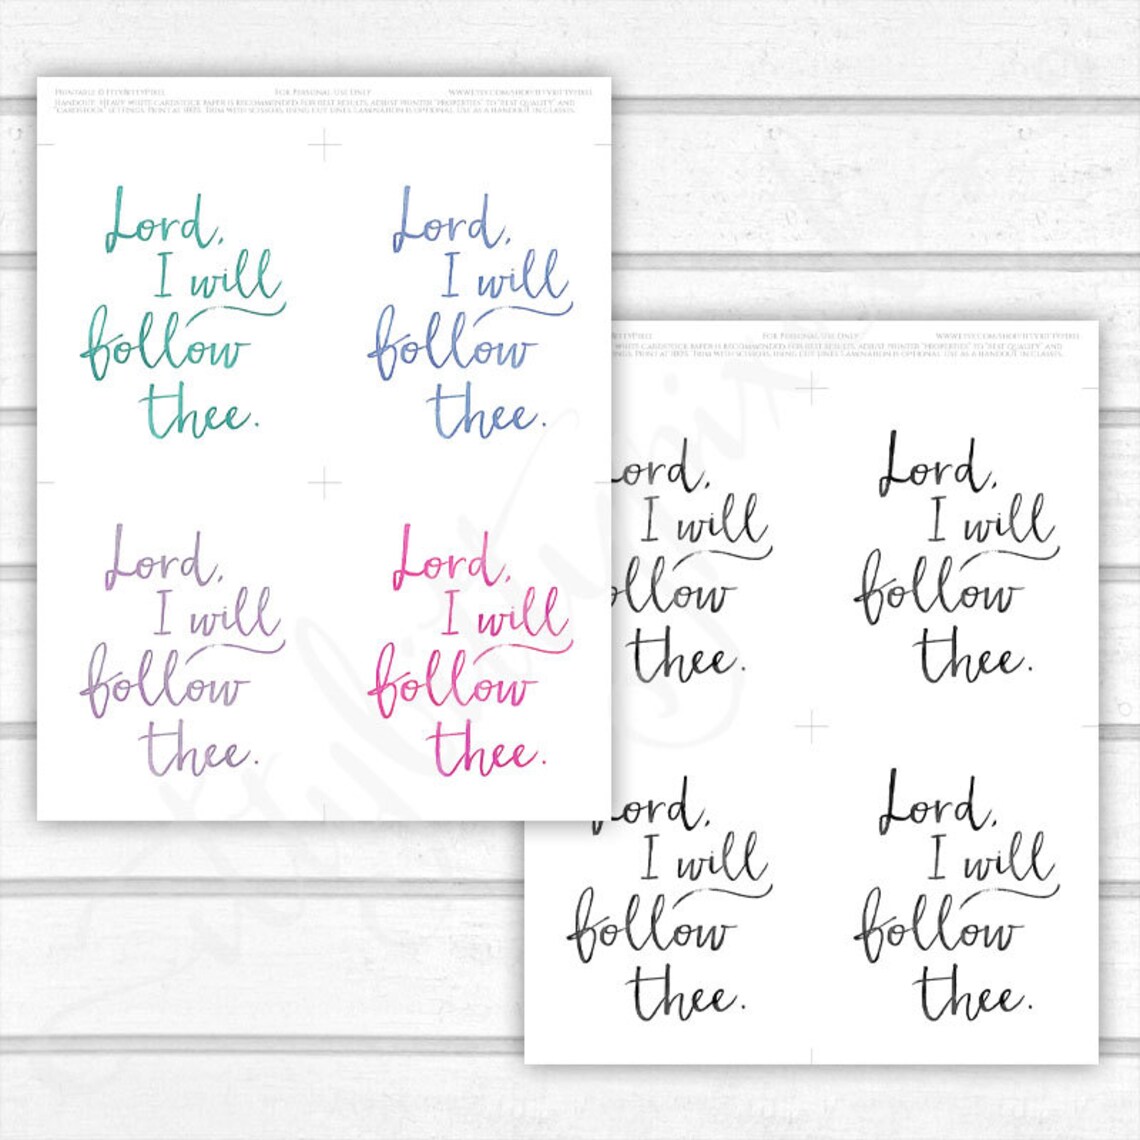 Printable © IttyBittyPixel For Personal Use Only www.etsy.com/shop/ittybittypixel
Handout: Heavy white cardstock paper is recommended. For best results, adjust printer "properties" to "best quality" and
"cardstock" settings. Print at 100%. Trim with scissors, using cut lines. Lamination is optional. Use as a handout in classes.
Lord,
I will
follow
thee.
Lord,
I will
follow
thee.
Lord,
I will
follow
thee.
Lord,
I will
follow
thee.
For Personal Use Only www.etsy.com/shop/ittybittypixel
white cardstock paper is recommended. For best results, adjust printer "properties" to "best quality" and
Print at 100%. Trim with scissors, using cut lines. Lamination is optional. Use as a handout in classes.
Lord,
I will
follow
thee.
Lord,
I will
follow
thee.
Lord,
I will
follow
thee.
Lord,
I will
follow
thee.
ittybittypixel